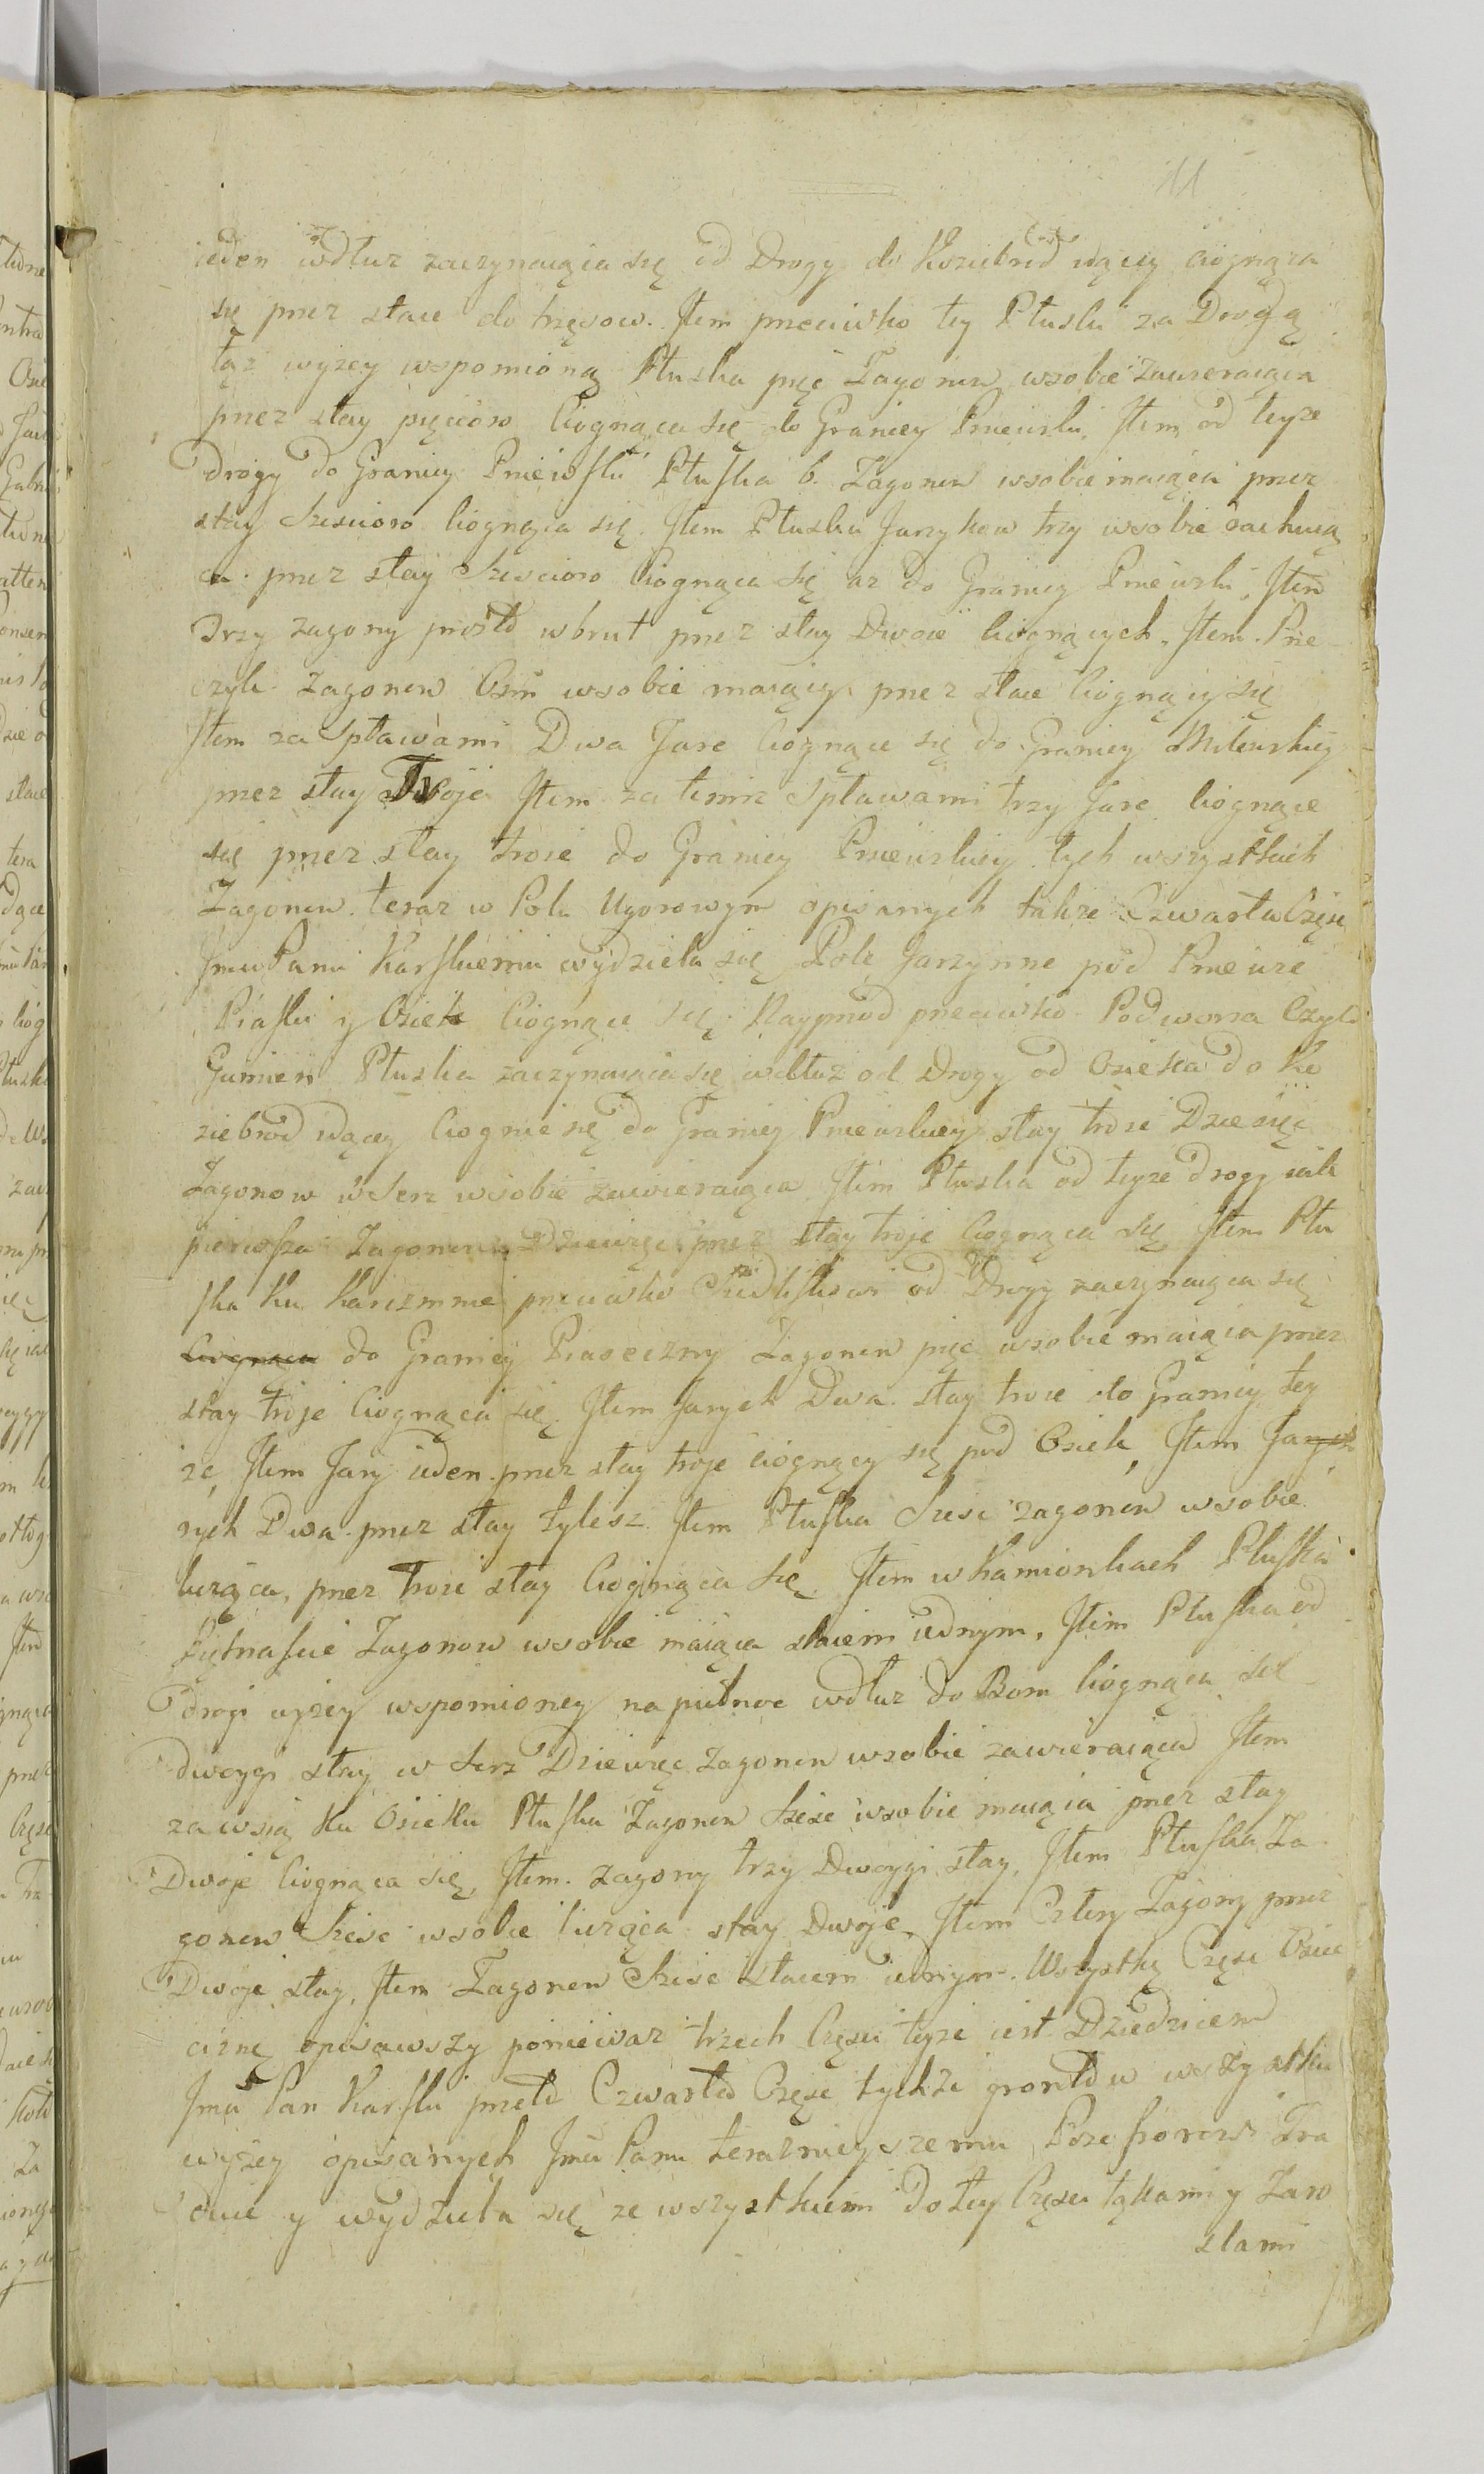 11
ieden wdłuz zaczynaiąca się od Drogy do Koziebrod idący ciognąca
się przez staie do trzęsow. Jtem przeciwko tey Płuski za Drogą
tąz wyzey wspomioną Płuska pięc Zagonow wsobie zawieraiąca
przez stay pięcioro Ciognąca się do Granicy Pniewski, Jtem od teyze
Drogy do Granicy Pniewski Płuska 6. Zagonow wsobie maiąca przez
stay Szescioro Ciognąca się. Jtem Płuska Jarzykow trzy wsobie rachuią
ca przez stay Szescioro Ciognąca się az do Granicy Pniewski, Jtem
Trzy zagony prosto wbrut przez stay Dwoie Ciognących. Jtem. Prze
czyk Zagonow Osm wsobie maiący przez staie Ciognący się
Jtem za Spławami Dwa Jare Ciognące się do Granicy Milewskiey
przez stay Troje Jtem za temiz Spławami trzy Jare Ciognące
się przez stay troie do Granicy Pniewskiey tych wszystkich
Zagonow teraz w Polu Ugorowym opisanych takze Czwarta Częsc
Jmu Panu Karskiemu wydziela się Pole Jarzynne pod Pniewie
Piaski y Osiek Ciognące się. Nayprzod przeciwko Podworza Czyli
Gumien Płuska zaczynaiąca się wdłuz od Drogy od Osieka do Ko
ziebrod idący Ciognie się do Granicy Pniewskiey stay troie Dziesięc
Zagonow wSerz wsobie zawieraiąca Jtem Płuska od teyze Drogy iak
pierwsza Zagonow Dziewięc przez stay troje Ciognąca się, Jtem Płu
ska ku Karczmnie przeciwko Siedliskowi od Drogy zaczynaiąca się
Ciognąca do Granicy Piaseczny Zagonow pięc wsobie maiąca przez
stay troje Ciognąca się. Jtem Jarych Dwa stay troie do Granicy tey
ze, Jtem Jary ieden przez stay troje ciognący się pod Osiek, Jtem Jarych
rych Dwa przez stay tylesz Jtem Płuska Szesc zagonow wsobie
licząca, przez troie stay Ciognąca się, Jtem w Kamionkach Płuska
Piętnascie Zagonow wsobie maiąca staiem iednym, Jtem Płuska od
Drogi wyzey wspomioney na pułnoc wdłuz do Boru Ciognąca się
dwoygi stay w Serz Dziewięc Zagonow wsobie zawieraiąca Jtem
za wsią Ku Osieku Płuska Zagonow Szesc wsobie maiąca przez stay
Dwoje Ciognąca się, Jtem. zagony trzy Dwoygi stay, Jtem Płuska Za
gonow Szesc wsobie licząca stay Dwoje, Jtem Cztery Zagony przez
Dwoje stay, Jtem Zagonow Szesc staiem iednym. Wszystkę Częsc Osie
ciznę opisawszy poniewaz trzech Częsci teyze iest Dziedzicem
Jmu Pan Karski przeto Czwarta Częsc tychze grontow wszystkich
wyzey opisanych Jmu Panu teraznieyszemu Possessorowi Tra
duie y wydziela się ze wszystkiemi do tey Częsci łąkami y Zaro
slami